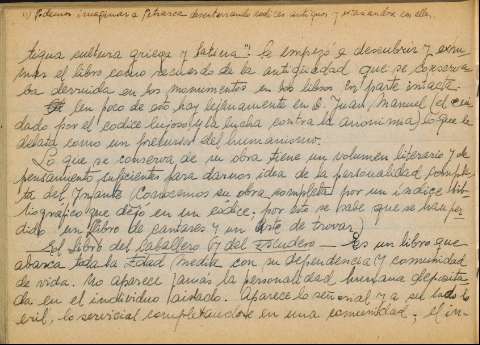 (1) Podemos imaginar a Petrarca desenterrando codices antiguos y extasiandose con ellos.
tigua cultura griega y latina". Se empezó a descubrir y exa-
minar el libro como recuerdo de la antigüedad que se conserva-
ba derruida en los monumentos en los libros en parte intacta.
Un poco de esto hay lejanamente en D. Juan Manuel (el cui-
dado por el codice lujoso y la lucha contra la anonimia) lo que le
delata como un precursor del humanismo.
Lo que se conserva de su obra tiene un volumen literario y de
pensamiento suficientes para darnos idea de la personalidad comple-
ta del Infante (conocemos su obra completa por un indice bi-
bliográfico que dejó en un códice: por este se sabe que se han per-
dido un libro de cantares y un Arte de trovar)
El libro del Caballero y del Escudero — Es un libro que
abarca toda la Edad Media con su dependencia y comunidad
de vida. No aparece jamás la personalidad humana deposita-
da en el individuo aislado. Aparece lo señorial y a su lado lo
eril, lo servicial completandose en una comunidad; el in-